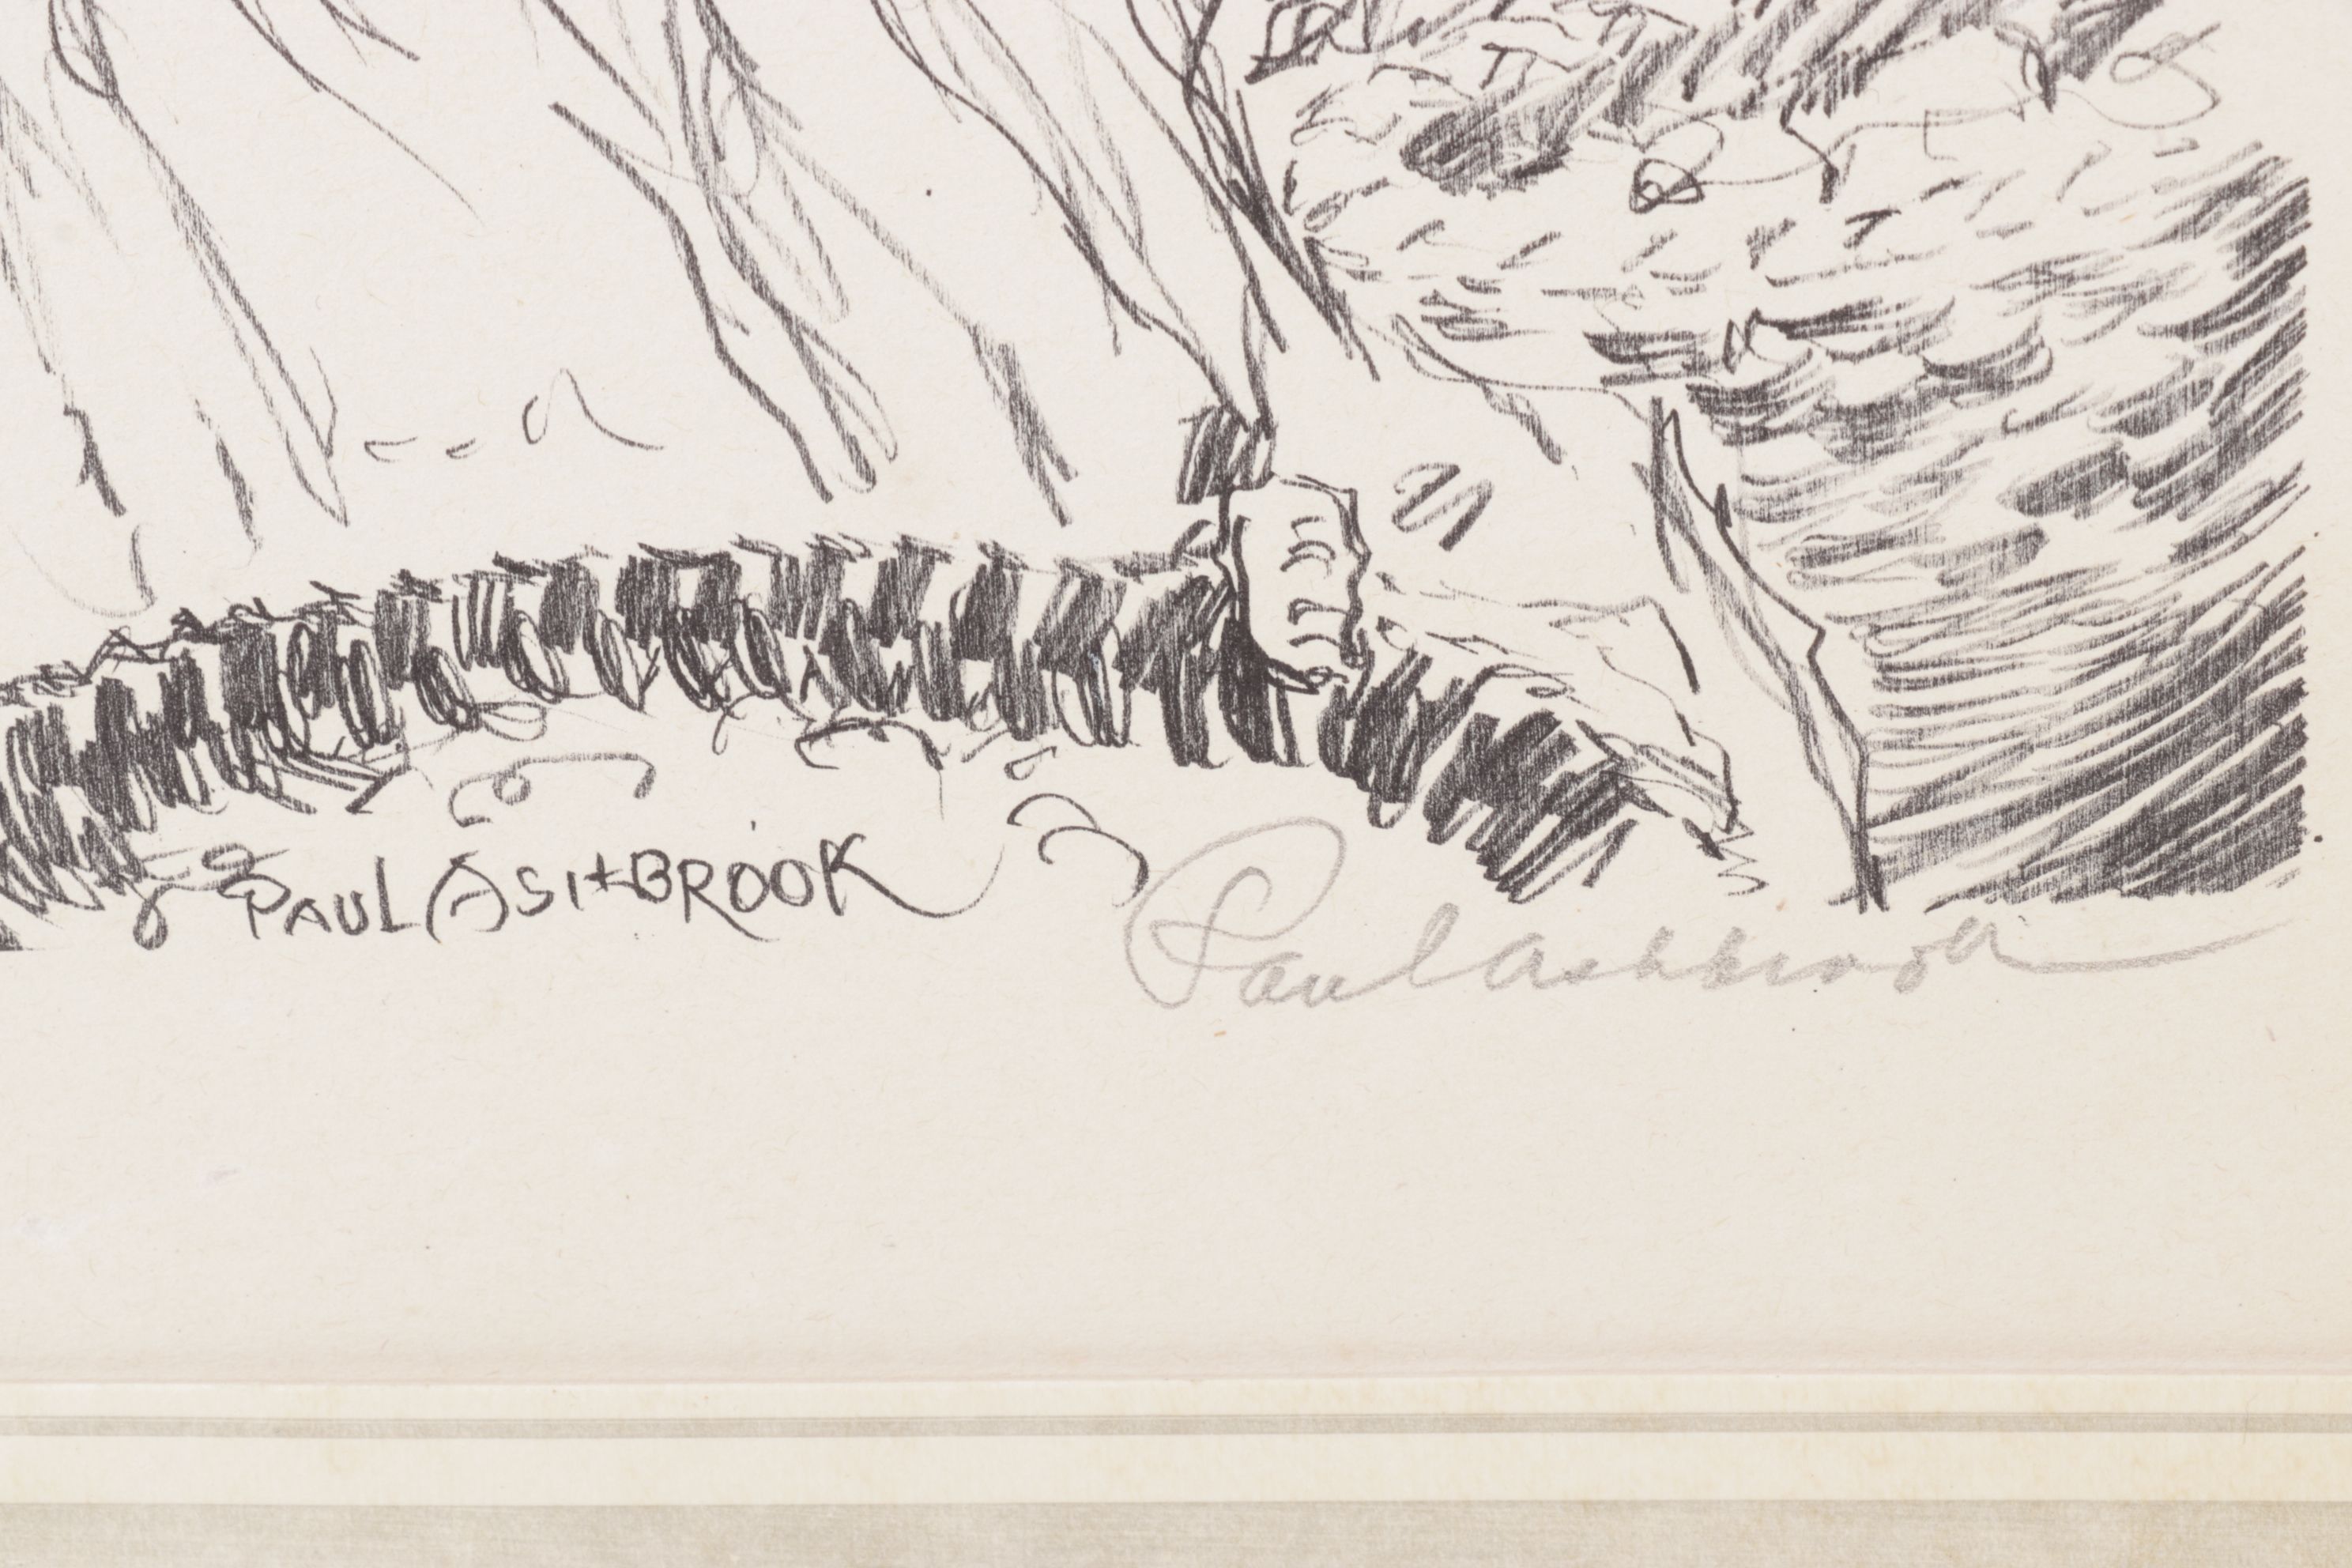 PAUL ASHBROOK
Paul Ashbrook